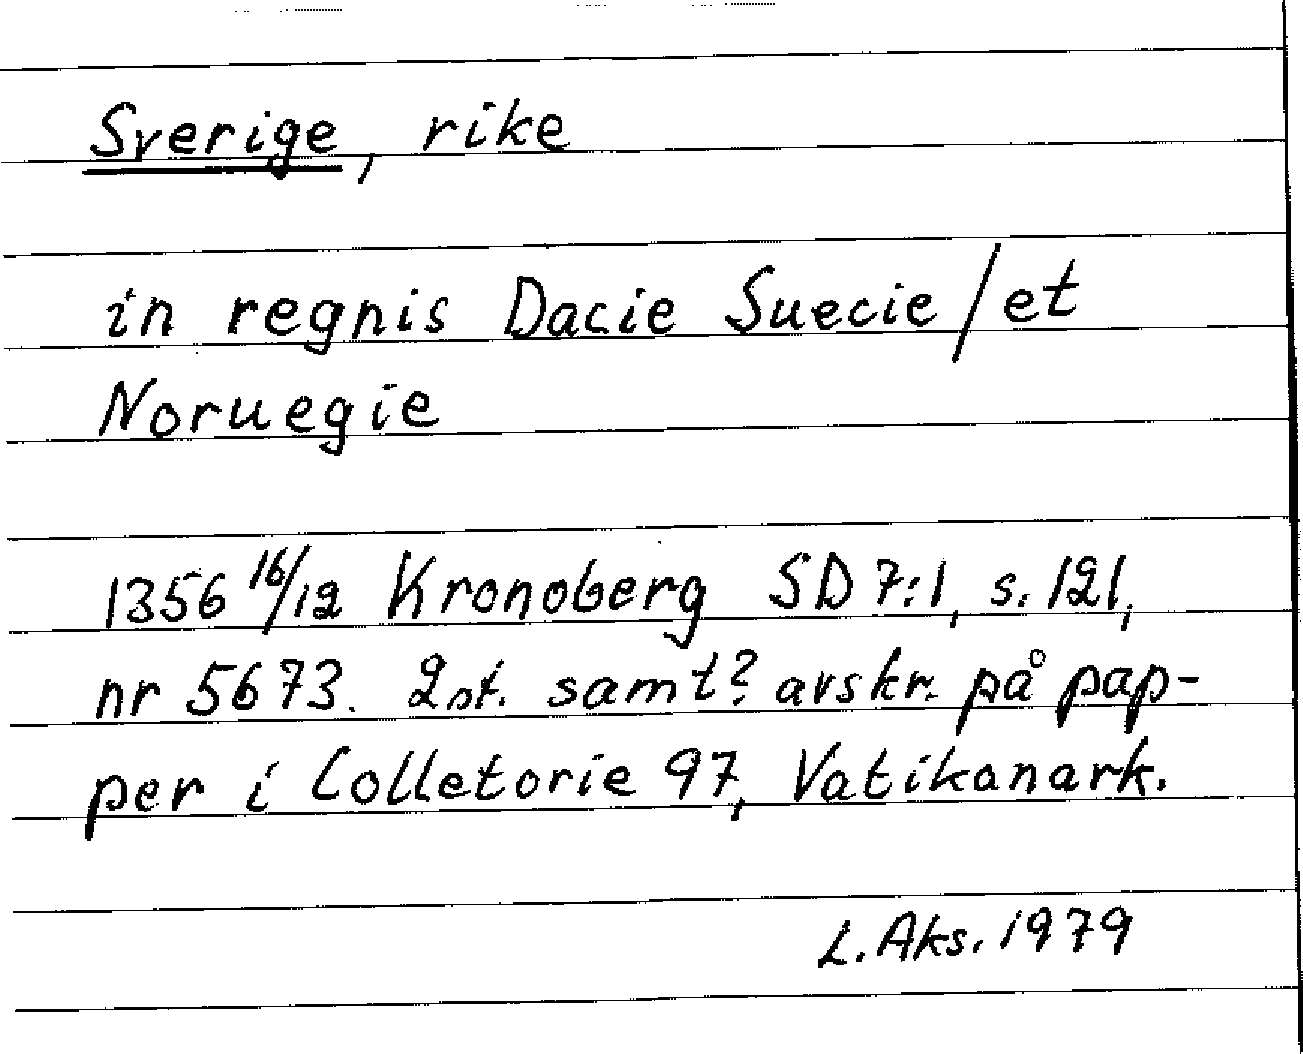 Sverige, rike
in regnis Dacie Suecie/et
Noruegie
1356 16/12 Kronoberg SD 7:1, s. 121,
nr 5673. 2 st. samt? avskr. på pap-
per i Colletorie 97, Vatikanark.
L. Aks. 1979